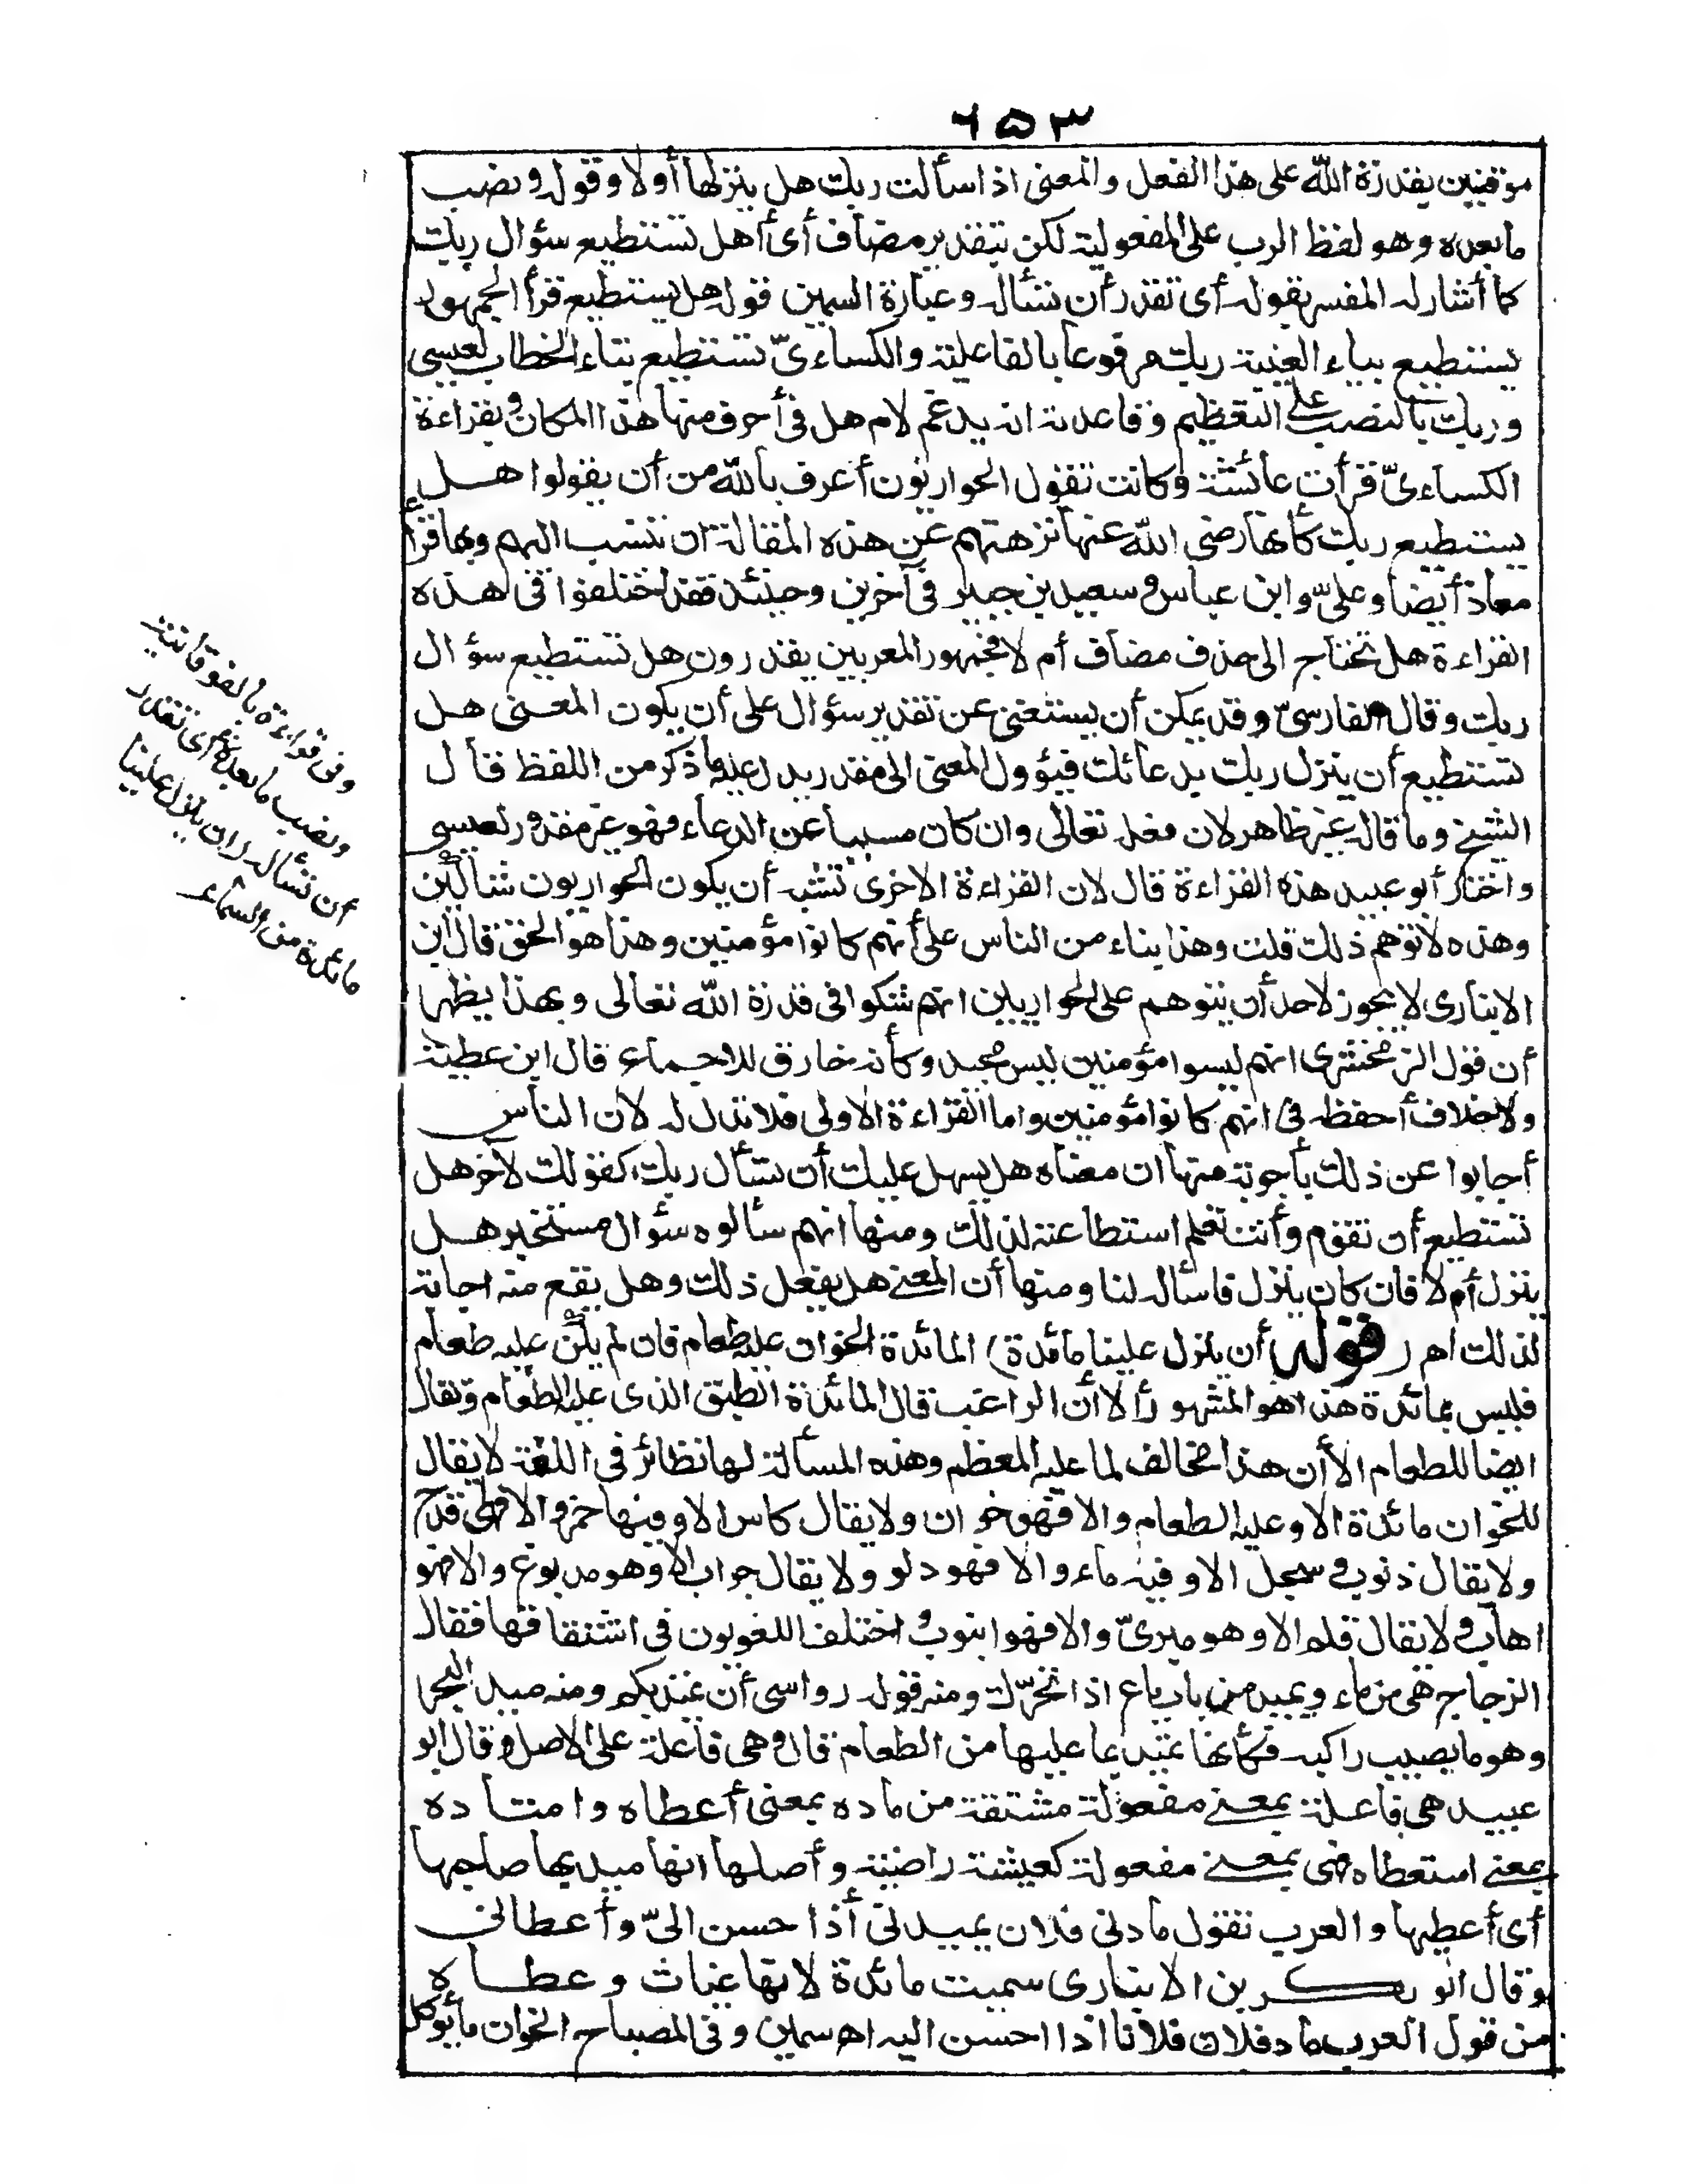 ٦٥٣
موقنين بقدرة الله على هذا الفعل والمعنى اذا سألت ربك هل ينزلها أولا وقوله ونصب
ما بعده وهو لفظ الرب على المفعولية لكن بتقدير مضاف أى أهل تستطيع سؤال ربك
كما أشار له المفسر بقوله أى تقدر أن تسأله وعبارة السمين قوله هل يستطيع قرأ الجمهور
يستطيع بياء الغيبة ربك مرفوعا بالفاعلية والكساءىّ تستطيع بتاء الخطاب لعيسى
وربك بالنصب على التعظيم وقاعدته انه يدغم لام هل فى أحرف منها هذا المكان وبقراءة
الكساءىّ قرأت عائشة وكانت تقول الحواريون أعرف بالله من أن يقولوا هل
يستطيع ربك كأنها رضى الله عنها نزهتهم عن هذه المقالة ان تنسب اليهم وبها قرأ
معاذ أيضا وعلىّ وابن عباس وسعيد بن جبير فى آخرين وحينئذ فقد اختلفوا فى هذه
القراءة هل تحتاج الى حذف مضاف أم لا فجمهور المعربين يقدرون هل تستطيع سؤال
ربك وقال الفارسىّ وقد يمكن أن يستغنى عن تقدير سؤال على أن يكون المعنى هل
تستطيع أن ينزل ربك بدعائك فيؤول المعنى الى مقدر يدل عليه ما ذكر من اللفظ قال
الشيخ وما قاله غير ظاهر لان فعله تعالى وان كان مسببا عن الدعاء فهو غير مقدور لعيسى
واختار أبو عبيد هذه القراءة قال لان القراءة الاخرى تشبه أن يكون الحواريون شاكّين
وهذه لا توهم ذلك قلت وهذا بناء من الناس على أنهم كانوا مؤمنين وهذا هو الحق قال ابن
الانبارى لا يجوز لاحد أن يتوهم على الحواريين انهم شكوا فى قدرة الله تعالى وبهذا يظهر
أن قول الزمخشرى انهم ليسوا مؤمنين ليس بجيد وكأنه خارق للاجماع قال ابن عطية
ولا خلاف أحفظه فى انهم كانوا مؤمنين واما القراءة الاولى فلا تدل له لان الناس
أجابوا عن ذلك بأجوبة منها ان معناه هل يسهل عليك أن تسأل ربك كقولك لآخر هل
تستطيع أن تقوم وأنت تعلم استطاعته لذلك ومنها انهم سألوه سؤال مستخبر هل
ينزل أم لا فان كان ينزل فاسأله لنا ومنها أن المعنى هل يفعل ذلك وهل يقع منه اجابة
لذلك اهـ (قوله أن ينزل علينا مائدة) المائدة الخوان عليه طعام فان لم يكن عليه طعام
فليس بمائدة هذا هو المشهور ألا أن الراغب قال المائدة الطبق الذى عليه الطعام وتقال
ايضا للطعام الا أن هذا مخالف لما عليه المعظم وهذه المسألة لها نظائر فى اللغة لا يقال
للخوان مائدة الا وعليه الطعام والا فهو خوان ولا يقال كاس الا وفيها خمر والا فهى قدح
ولا يقال ذنوب وسجل الا وفيه ماء والا فهو دلو ولا يقال جراب الا وهو مدبوغ والا فهو
اهاب ولا يقال قلم الا وهو مبرىّ والا فهو انبوب واختلف اللغويون فى اشتقاقها فقال
الزجاج هى من ماد يميد من باب باع اذا تحرّك ومنه قوله رواسى أن تميد بكم ومنه ميد البحر
وهو ما يصيب راكبه فكأنها تميد بما عليها من الطعام قال وهى فاعلة على الاصل وقال ابو
عبيد هى فاعلة بمعنى مفعولة مشتقة من ماده بمعنى أعطاه وامتاده
بمعنى استعطاه فهى بمعنى مفعولة كعيشة راضية وأصلها انها ميد بها صاحبها
أى أعطيها والعرب تقول مادنى فلان يميدنى أذا حسن الىّ وأعطانى
وقال ابو بكر بن الانبارى سميت مائدة لانها غياث وعطاء
من قول العرب ماد فلان فلانا اذا احسن اليه اهـ سمين وفى المصباح الخوان ما يؤكل
وفى قراءة بالفوقانية
ونصب ما بعده أى تقدر
أن تسأله (ان ينزل علينا
مائدة من السماء